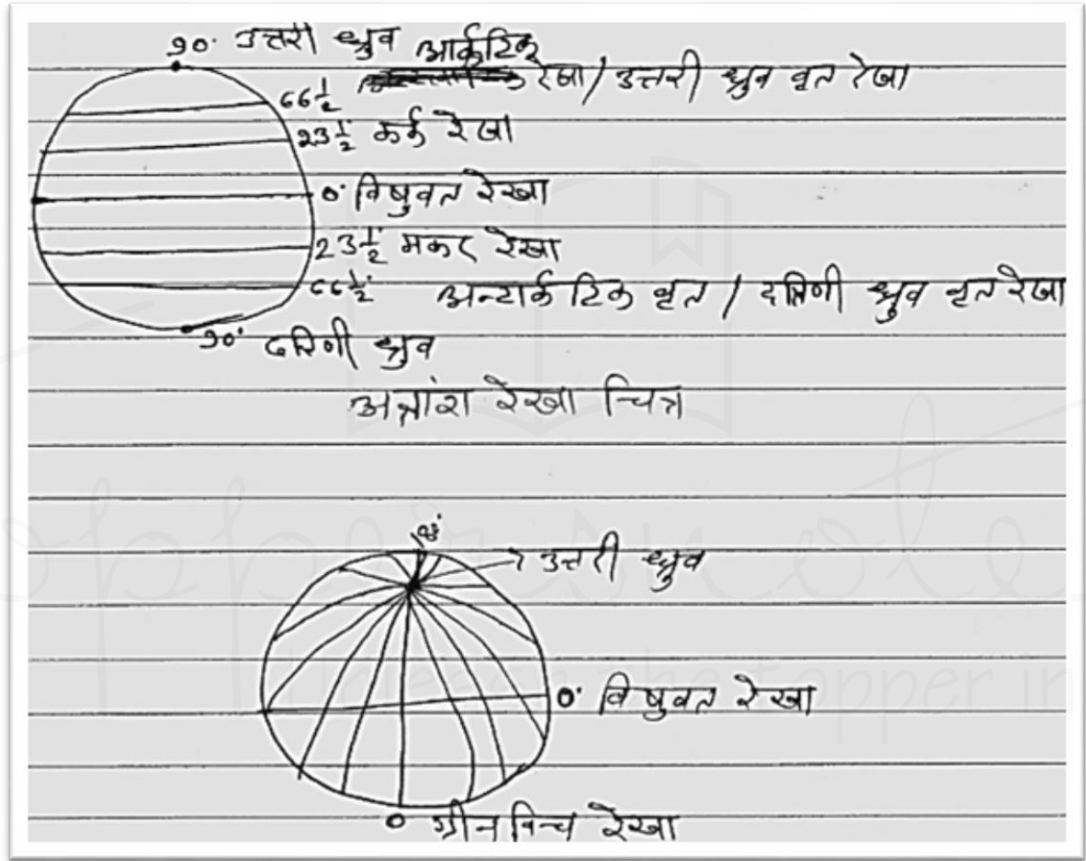 90° उत्तरी ध्रुव आर्कटिक
66½ रेखा/ उत्तरी ध्रुव वृत रेखा
23½° कर्क रेखा
0° विषुवत रेखा
23½° मकर रेखा
66½° अन्टार्कटिक वृत / दक्षिणी ध्रुव वृत रेखा
90° दक्षिणी ध्रुव
अक्षांश रेखा चित्र
उत्तरी ध्रुव
0° विषुवत रेखा
0 ग्रीनविच रेखा